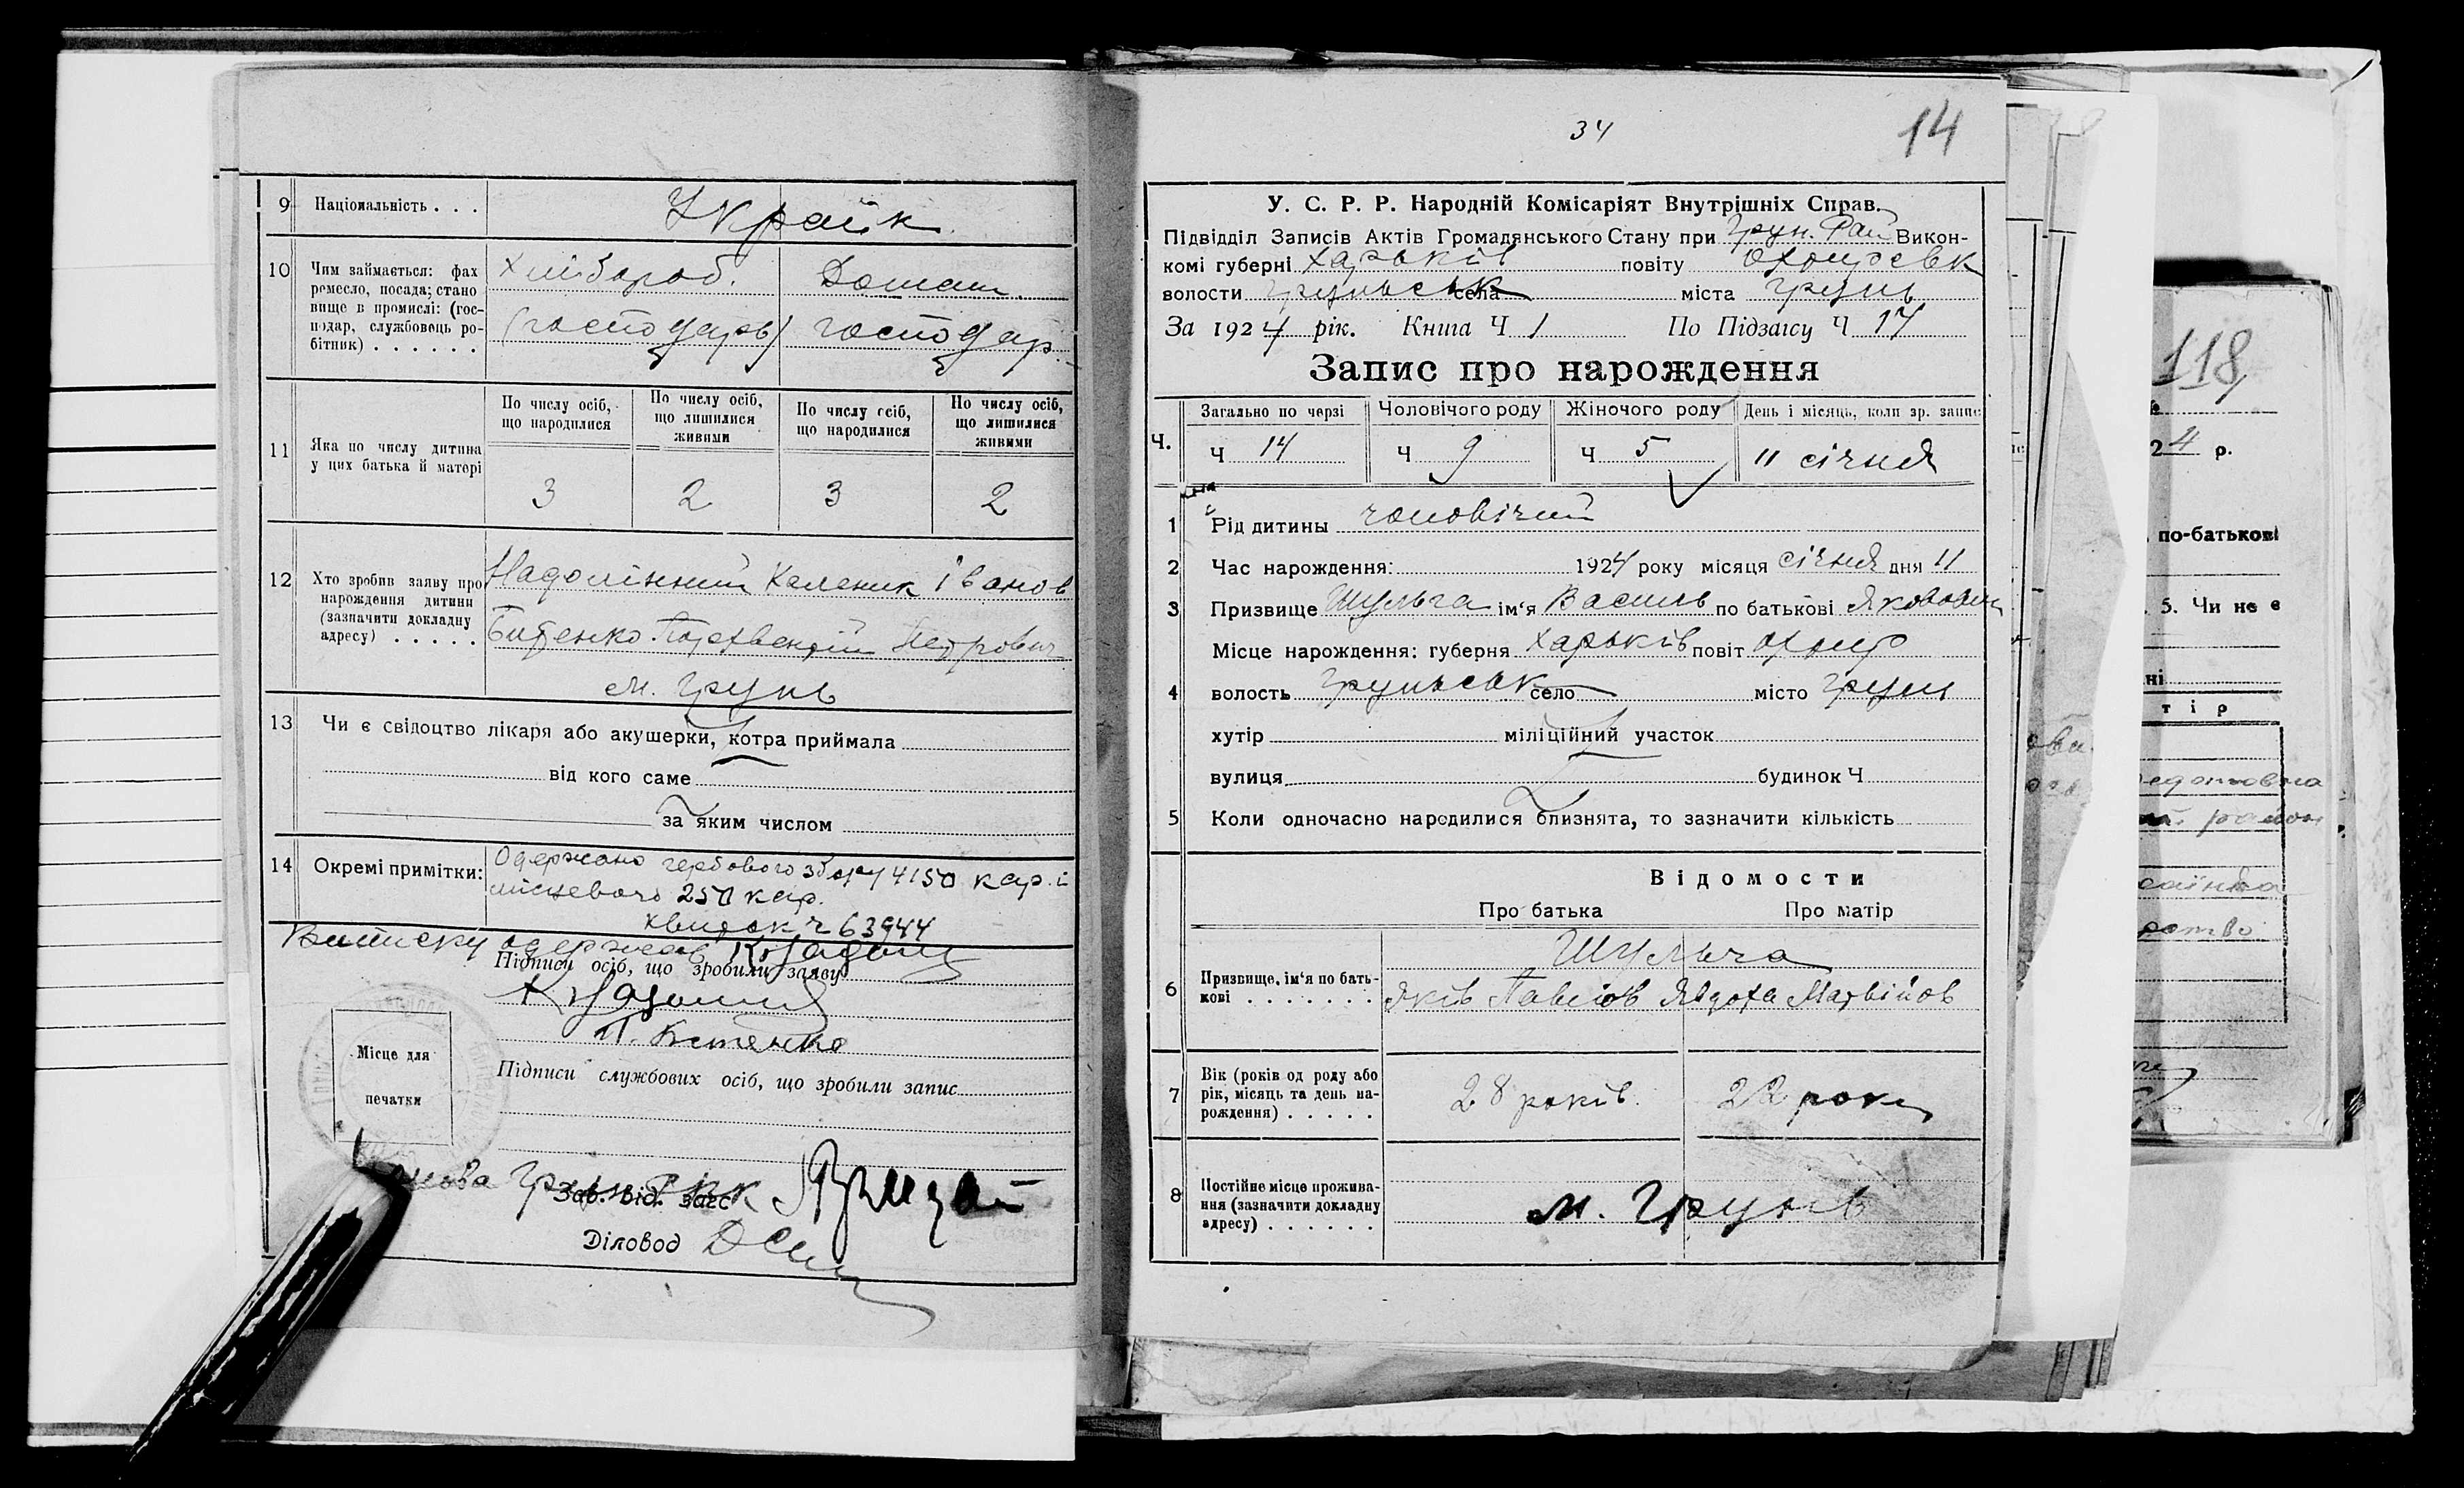 9 Національність . . .
Україн.
10 Чим займається: фах ремесло, посада; становище в промислі: (господар, службовець робітник) . . . . . .
Хлібороб. Домаш.
(господарь) господар.
11 Яка по числу дитина у цих батька й матері
По числу осіб, що народилися
По числу осіб, що лишилися живими
По числу осіб, що народилися
По числу осіб, що лишилися живими
3 2 3 2
12 Хто зробив заяву про нарождення дитини (зазначити докладну адресу) . . . . .
Каленик Іванов
Петрович
м. Грунь
13 Чи є свідоцтво лікаря або акушерки, котра приймала
від кого саме
за яким числом
14 Окремі примітки:
Одержано гербового збору 4150 кар. і
місцевого 250 кар.
квиток ч 63944
Виписку одержав
Підписи осіб, що зробили заяву
Підписи службових осіб, що зробили запис
Місце для
печатки
Зав. від. загс
Діловод
34
14
У. С. Р. Р. Народній Комісаріят Внутрішніх Справ.
Підвідділ Записів Актів Громадянського Стану при Грун. Рай Викон-
комі губерні Харьків повіту Охтирськ
волости Груньськ села міста Грунь
За 1924 рік. Книга Ч 1 По Підзагсу Ч 14
Запис про нарождення
Загально по черзі Чоловічого роду Жіночого роду День і місяць, коли зр. запис
Ч. Ч 14 Ч 9 Ч 5 11 січня
1 Рід дитины чоловічий
2 Час нарождення: 1924 року місяця січня дня 11
3 Призвище Шульга ім'я Василь по батькові Якович
Місце нарождення: губерня Харьків повіт Охтир
4 волость Груньськ село місто Грунь
хутір міліційний участок
вулиця будинок Ч
5 Коли одночасно народилися близнята, то зазначити кількість
Відомости
Про батька Про матір
6 Призвище, ім'я по батькові . . . . . . .
Шульга
Яків Павлов Явдоха Матвійов
7 Вік (років од роду або рік, місяць та день нарождення) . . . . .
28 років. 22 роки
8 Постійне місце проживання (зазначити докладну адресу) . . . . . .
м. Грунь
118
24 р.
по-батькові
5. Чи не є
тір